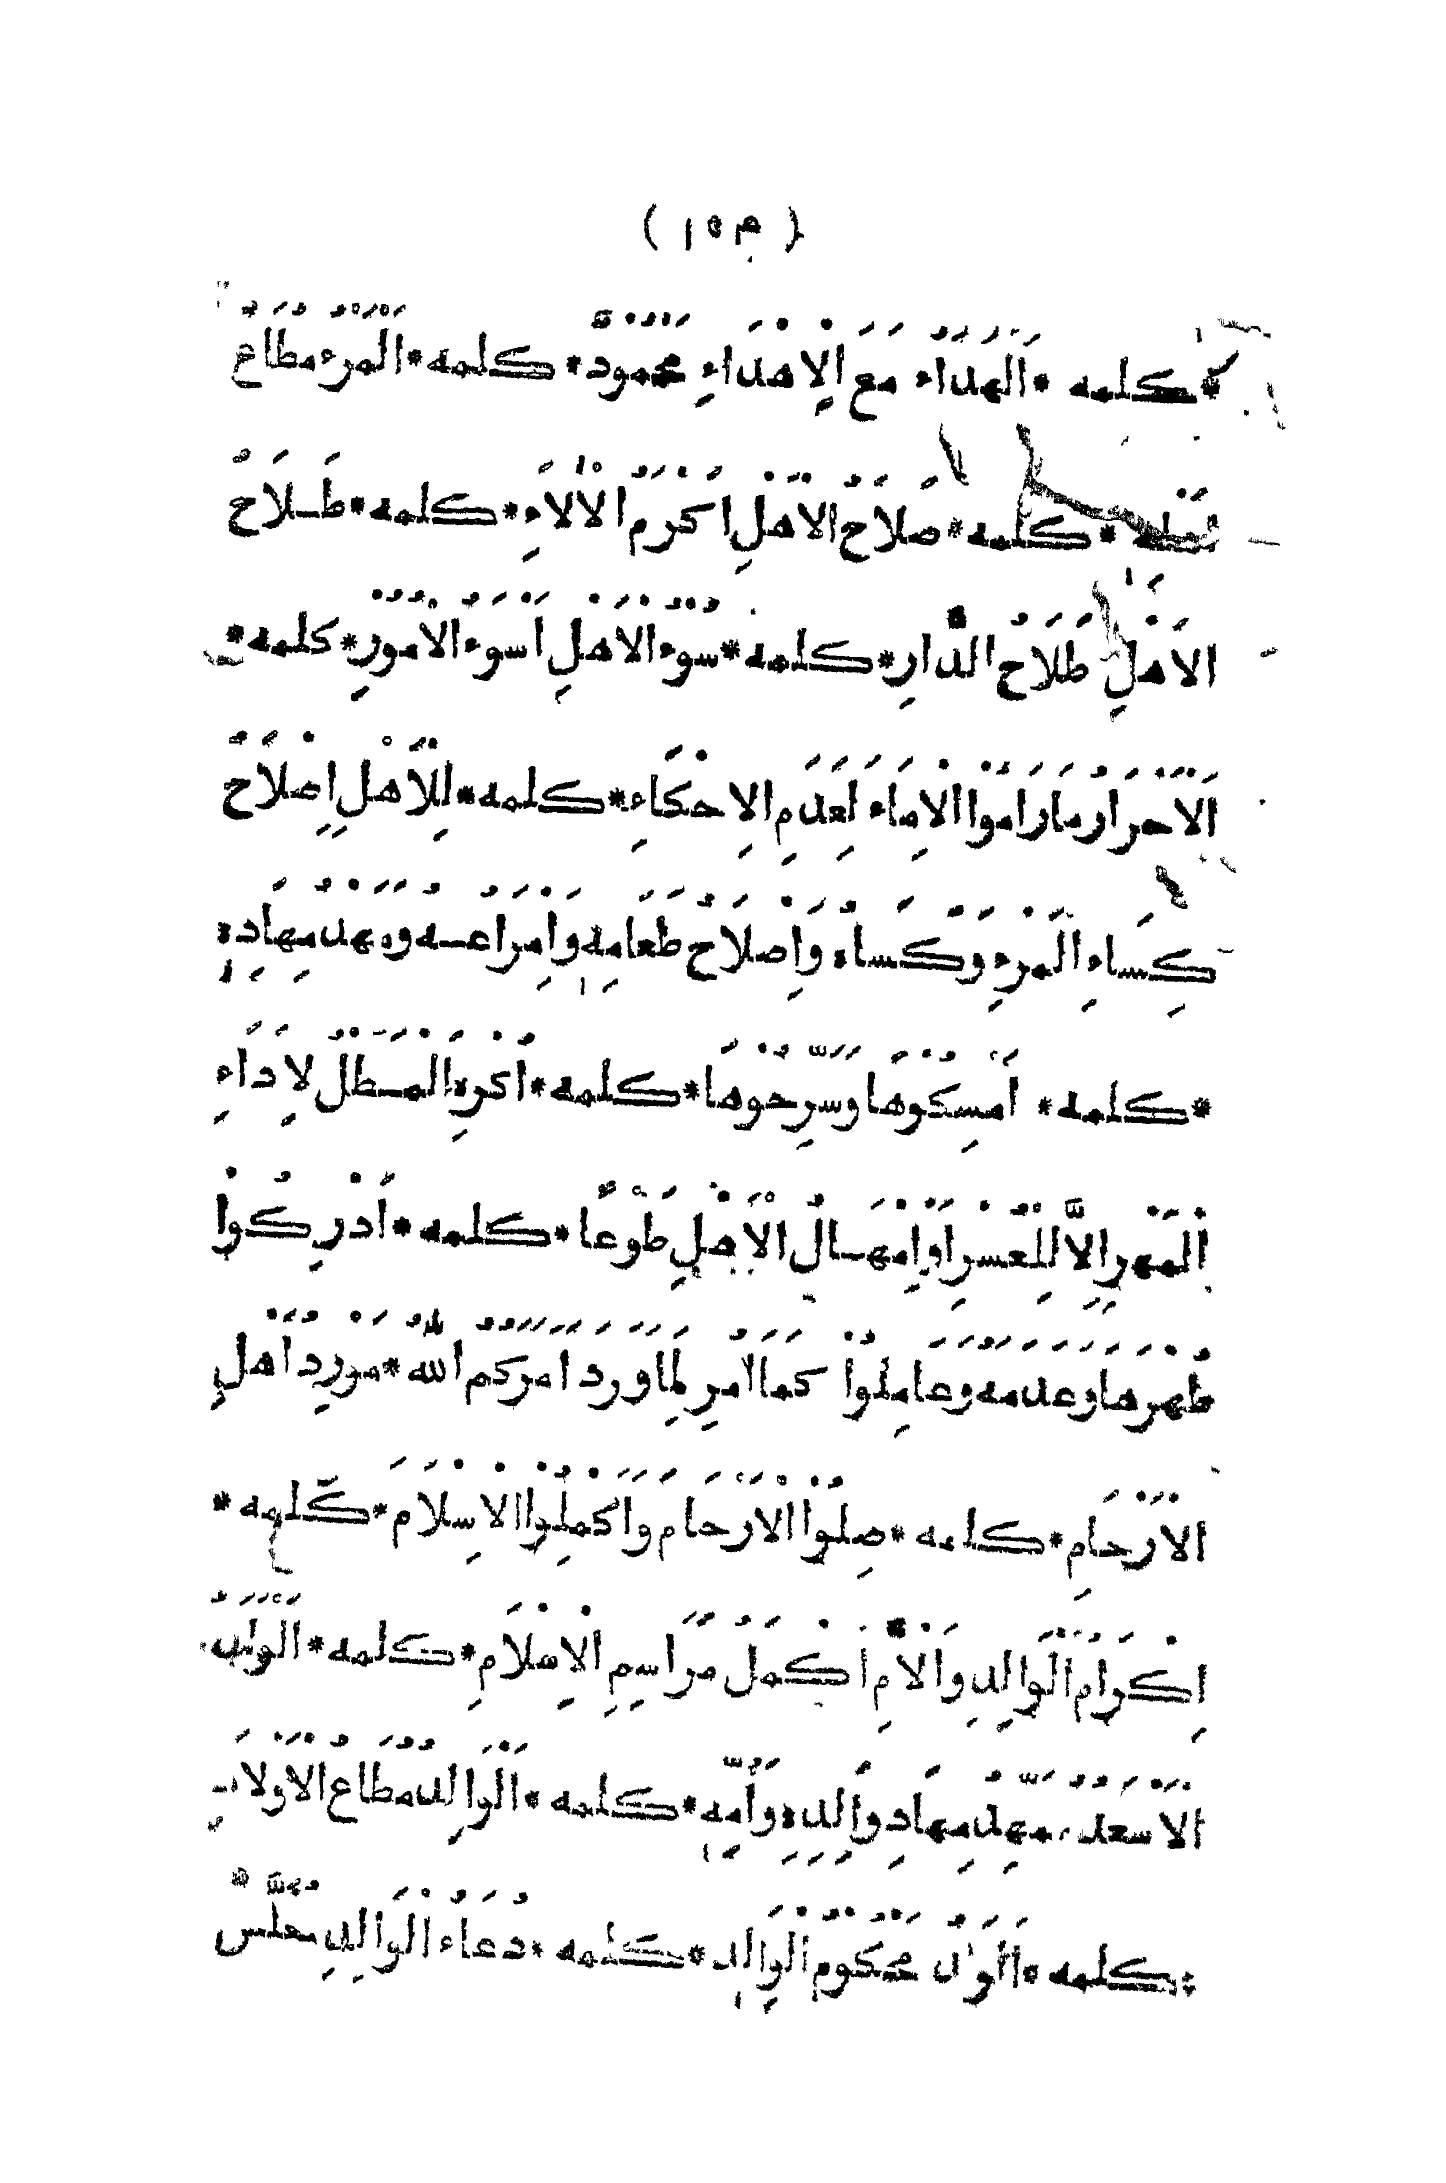 ( ١٥٣ )
* كلمه * اَلْهَدَاءُ مَعَ الْاِهْدَاءِ مَحْمُودٌ * كلمه * اَلْمَرْءُ مُطَاعُ
* كلمه * صَلَاحُ الْاَهْلِ اَكْرَمُ الْاٰلَاءِ * كلمه * طَلَاحُ
الْاَهْلِ طَلَاحُ الدَّارِ * كلمه * سُوْءُ الْاَهْلِ اَسْوَءُ الْاُمُوْرِ * كلمه *
اَلْاَحْرَارُ مَارَامُوا الْاِمَاءَ لِعَدَمِ الْاِحْكَاءِ * كلمه * لِلْاَهْلِ اِصْلَاحُ
كِسَاءِ الْمَرْءِ وَكَسَاهُ وَاِصْلَاحُ طَعَامِهٖ وَاِمْرَاعُـهُ وَمَهْدُ مِهَادِهٖ
* كلمه * اَمْسِكُوْهَا وَسَرِّحُوْهَا * كلمه * اُكْرِهَ الْمَـطْلُ لِاَدَاءِ
الْمَهْرِ اِلَّا لِلْعُسْرِ اَوْ اِمْهَـالُ الْاَهْلِ طَوْعًا * كلمه * اَدْرِكُوْا
طُهْرَهَا وَعَدَمَهُ وَعَامِلُوْا كَمَا اُمِرَ لِمَا وَرَدَ اَمَرَكُمُ اللّٰهُ * مَوْرِدُ اَهْلِ
الْاَرْحَامِ * كلمه * صِلُوْا الْاَرْحَامَ وَاَكْمِلُوْا الْاِسْلَامَ * كلمه *
اِكْرَامُ الْوَالِدِ وَالْاُمِّ اَكْمَلُ مَرَاسِمِ الْاِسْلَامِ * كلمه * اَلْوَلَدُ
الْاَسْعَدُ مُمَهِّدُ مِهَادِ وَالِدِهٖ وَاُمِّهٖ * كلمه * اَلْوَالِدُ مُطَاعُ الْاَوْلَادِ
* كلمه * اَلْوَلَدُ مَحْكُوْمُ الْوَالِدِ * كلمه * دُعَاءُ الْوَالِدِ